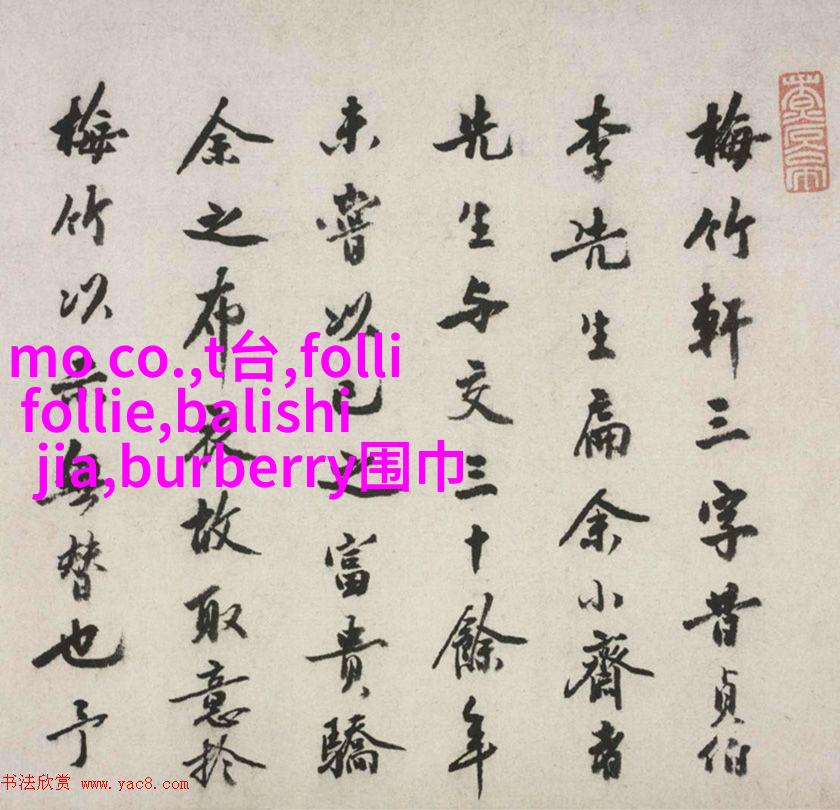 梅竹軒三字昔貞伯
李先生扁余小齋者
先生与交三十餘年
未嘗以己之富貴驕
余之布衣故取意於
梅竹以示無替也予
mo co.,t台,folli
follie,balishi
jia,burberry围巾
书法欣赏 www.yac8.com